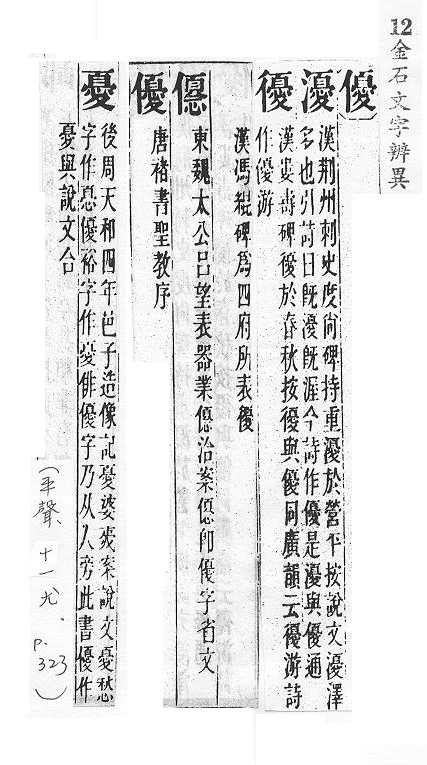 12金石文字辨異
優
瀀
漢荆州刺史度尚碑持重瀀於營平按說文瀀澤
多也引詩曰既瀀既渥今詩作優是瀀與優通
㥑
漢婁壽碑㥑於春秋按㥑與優同廣韻云㥑游詩
作優游
漢馮緄碑爲四府所表㥑
偲
東魏太公呂望表器業偲洽案偲即優字省文
優
唐褚書聖教序
憂
後周天和四年邑子造像記憂婆夷案說文憂愁
字作㥑優裕字作憂俳優字乃从人旁此書優作
憂與說文合
(平聲、十一尤、
p.323)